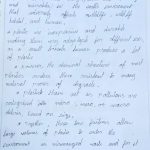 and microbeads, in the water environment
adversely affects wildlife, wildlife
habitat and human.
• plastic are inexpensive and durable
making them very adaptable for different uses;
as a result humans produce a lot
of plastic
• however, the chemical structure of most
plastics makes them resistant to many
natural process of degrade.
• plastics that act as pollutants are
categorized into micro-, meso-, or macro
debris, based on size.
• together these two factors allow
large volumes of plastic to enter the
environment as mismanaged waste and for it